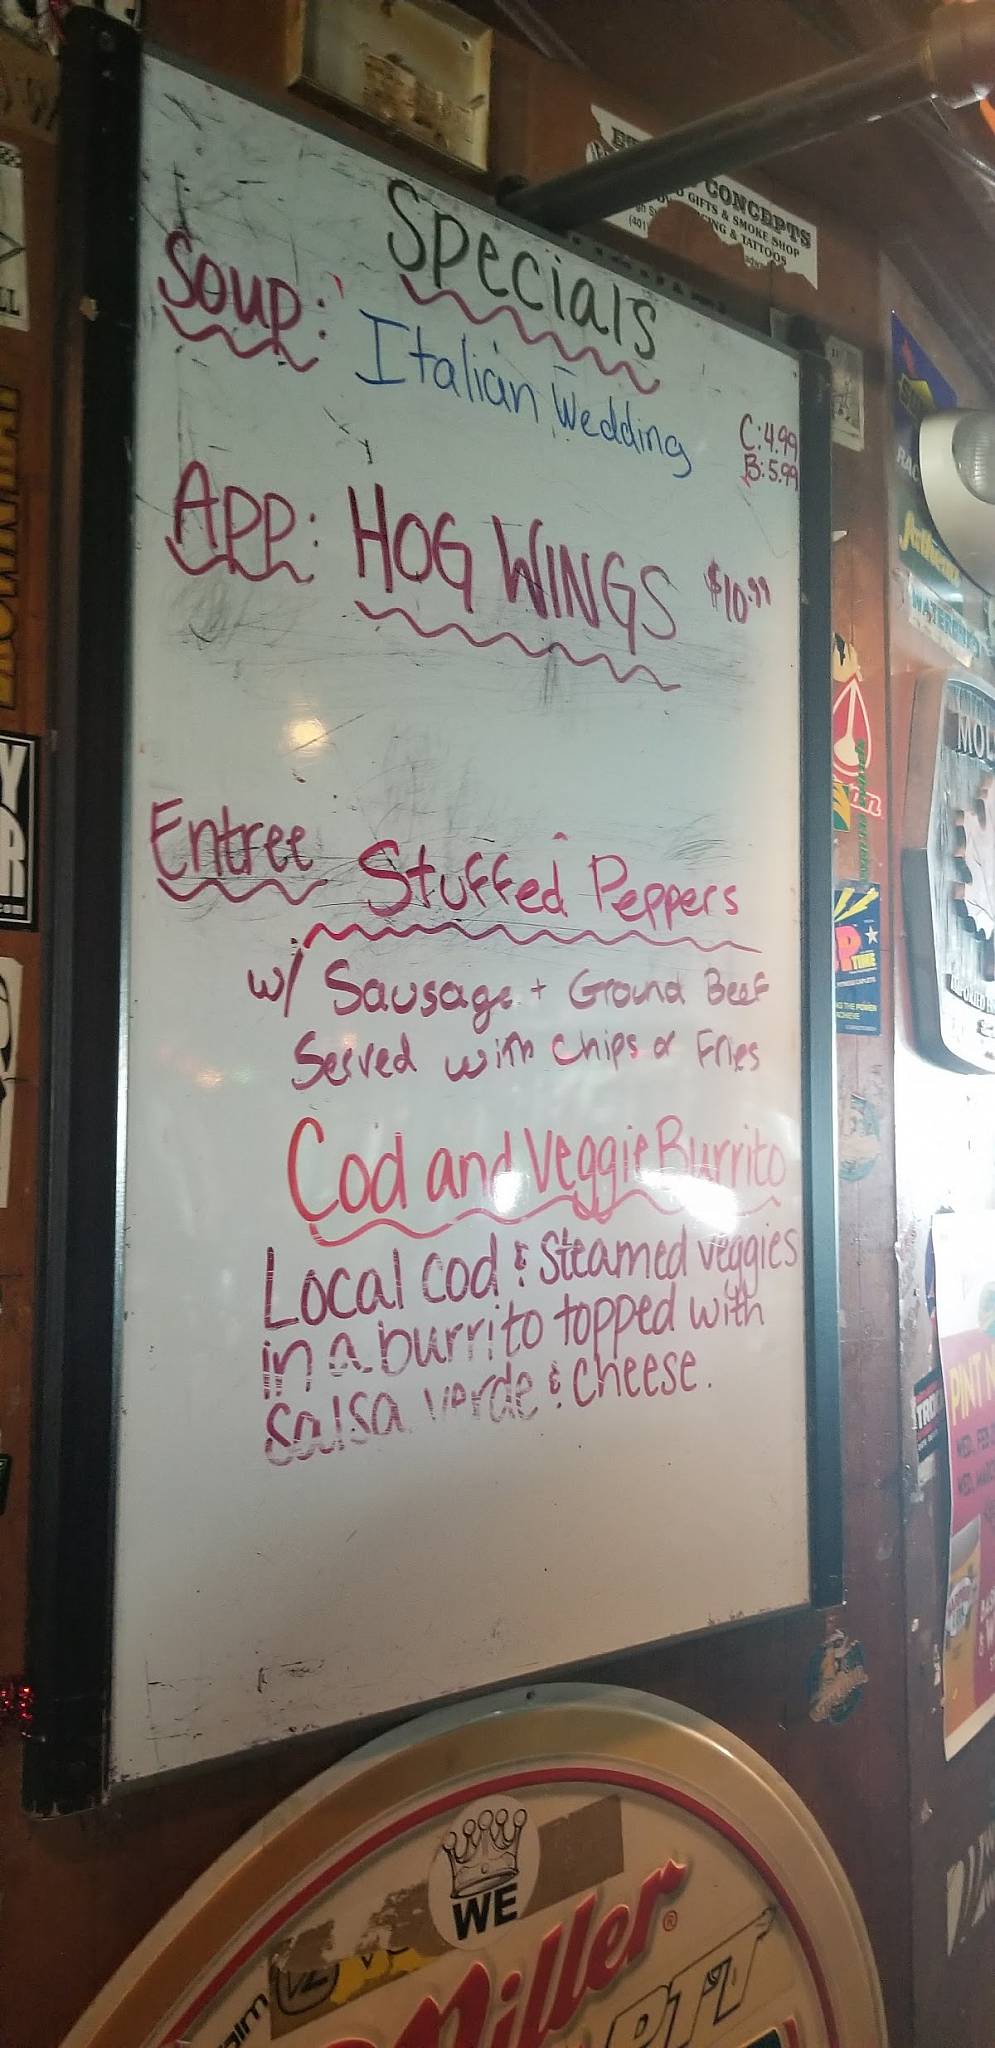 Specials
Soup: Italian Wedding
C: 4.99
B: 5.99
APP: HOG WINGS $10.99
Entree Stuffed Peppers
w/ Sausage + Ground Beef
Served with chips or Fries
Cod and Veggie Burrito
Local cod & steamed veggies
in a burrito topped with
salsa verde & cheese.
CONCEPTS
GIFTS & SMOKE SHOP
& TATTOOS
(401)
WE
Miller
TIME
PINT
WED. FEB